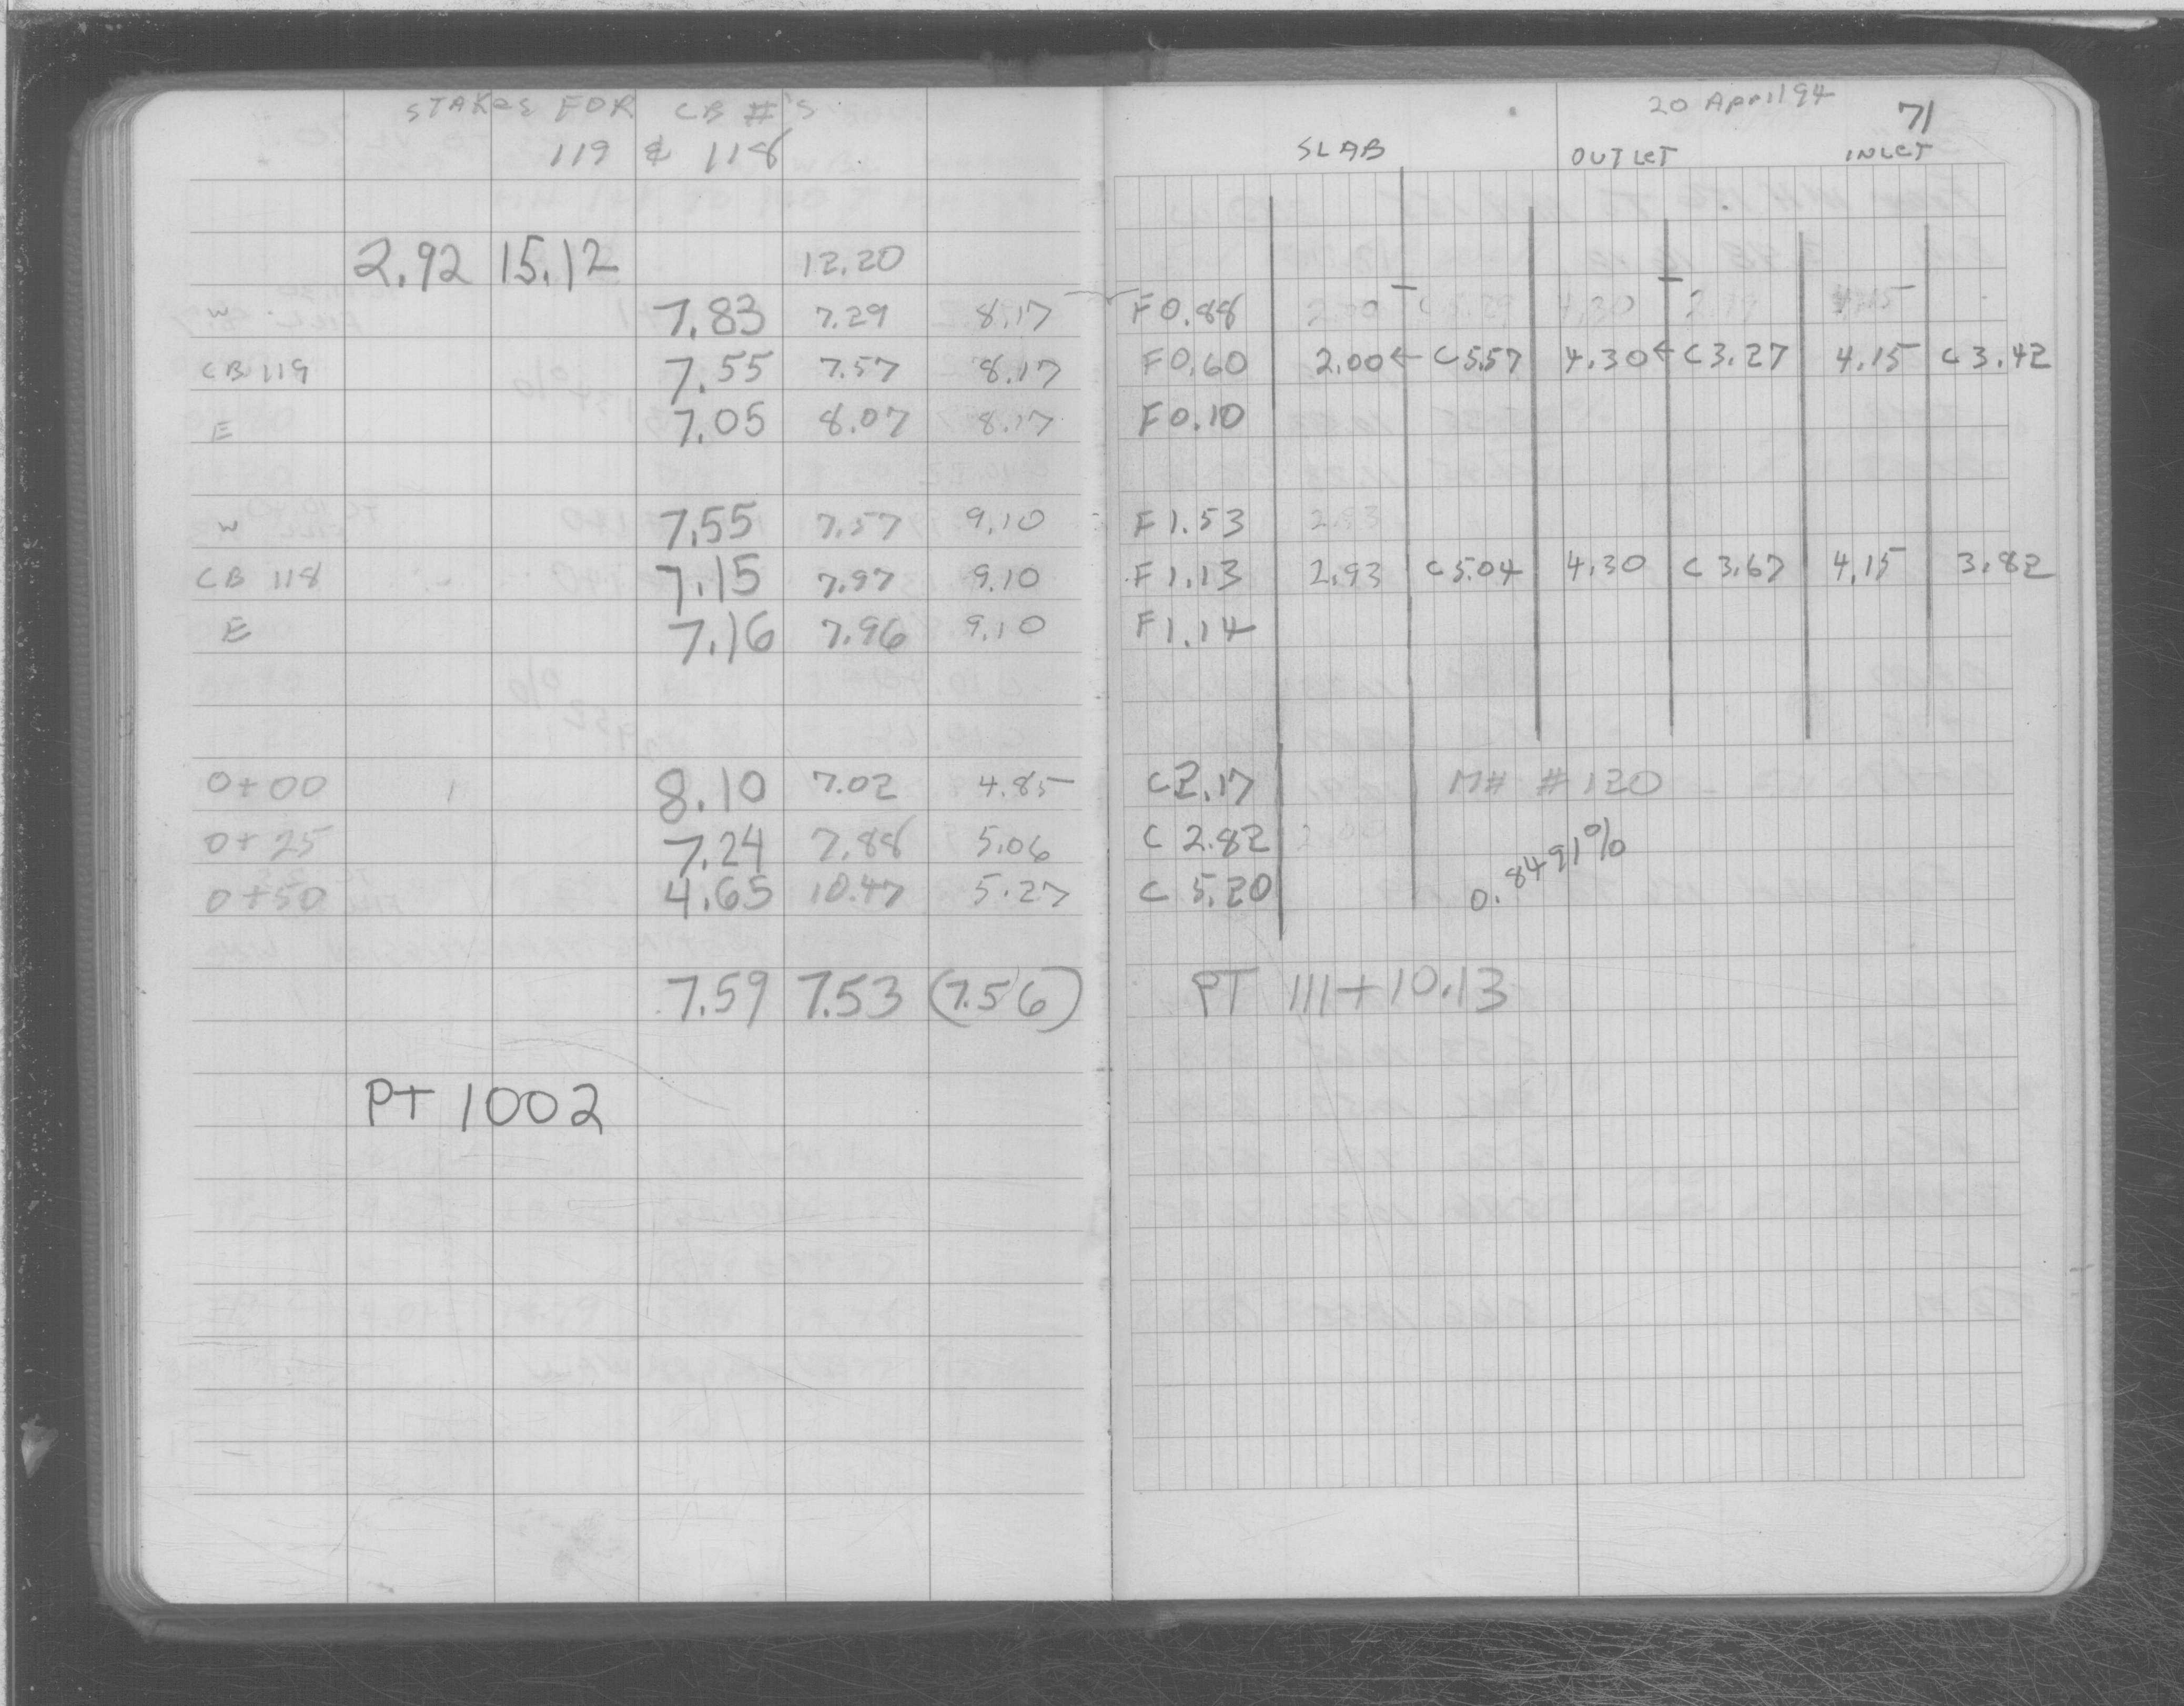 STAKES FOR CB #'S
119 & 118
2.92 15.12 12.20
W 7.83 7.29 8.17
CB 119 7.55 7.57 8.17
E 7.05 8.07 8.17
W 7.55 7.57 9.10
CB 118 7.15 7.97 9.10
E 7.16 7.96 9.10
0+00 8.10 7.02 4.85
0+25 7.24 7.88 5.06
0+50 4.65 10.47 5.27
7.59 7.53 (7.56)
PT 1002
20 April 94 71
SLAB OUTLET INLET
F 0.88
F 0.60 2.00 ← C 5.57 4.30 ← C 3.27 4.15 C 3.42
F 0.10
F 1.53 2.93
F 1.13 2.93 C 5.04 4.30 C 3.67 4.15 3.82
F 1.14
C 2.17 MH #120
C 2.82
C 5.20 0.8491%
PT 111+10.13